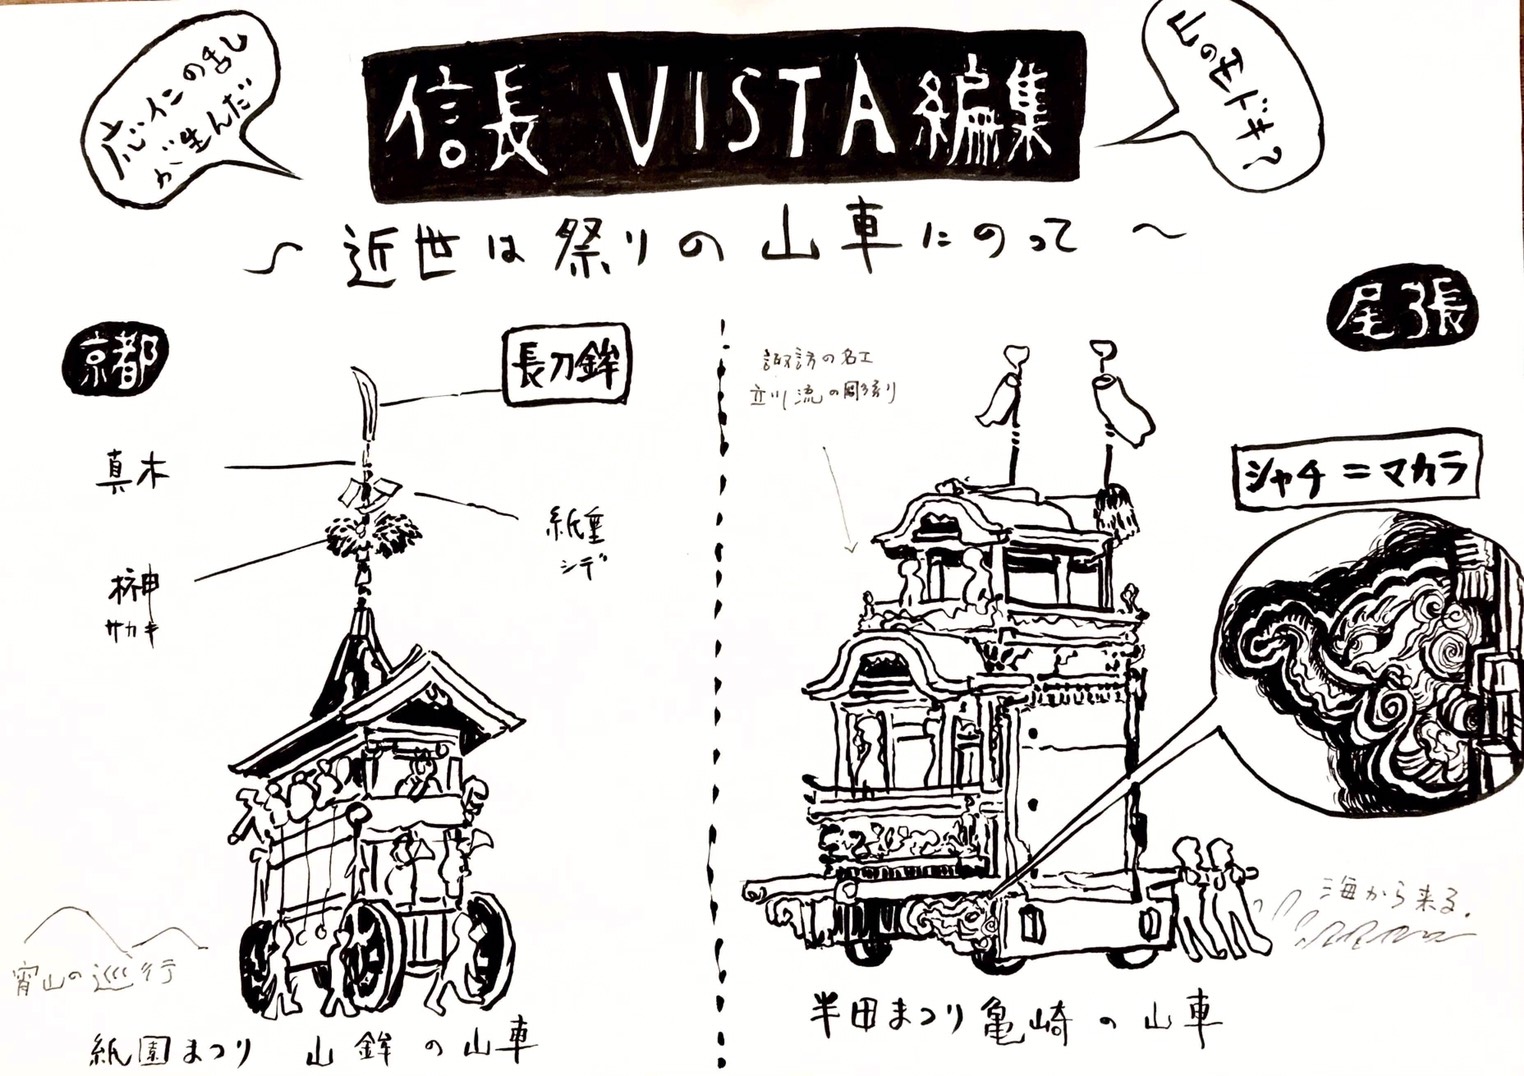 応仁の乱し
が生んだ
信長 VISTA 編集
山のモドキ?
～近世は祭りの山車にのって～
京都
長刀鉾
真木
紙垂
シデ
榊
サカキ
宵山の巡行
紙園まつり 山鉾の山車
尾張
諏訪の名工
立川流の彫り
シャチ=マカラ
海から来る.
半田まつり亀崎の山車